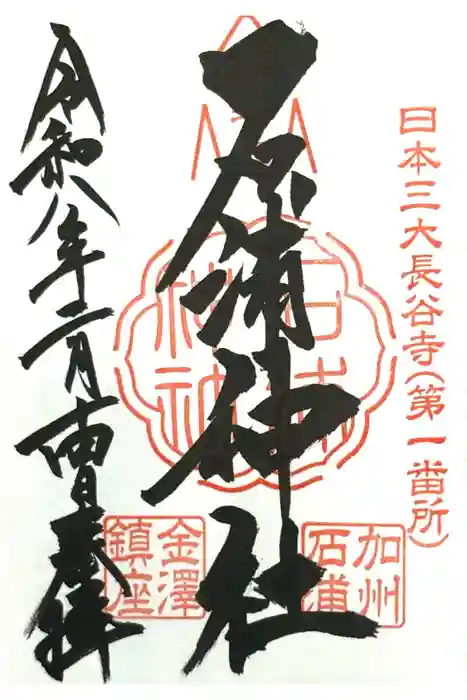 日本三大長谷寺(第一番所)
石浦神社
石浦
神社
加州
石浦
金澤
鎮座
令和八年二月十四日奉拝